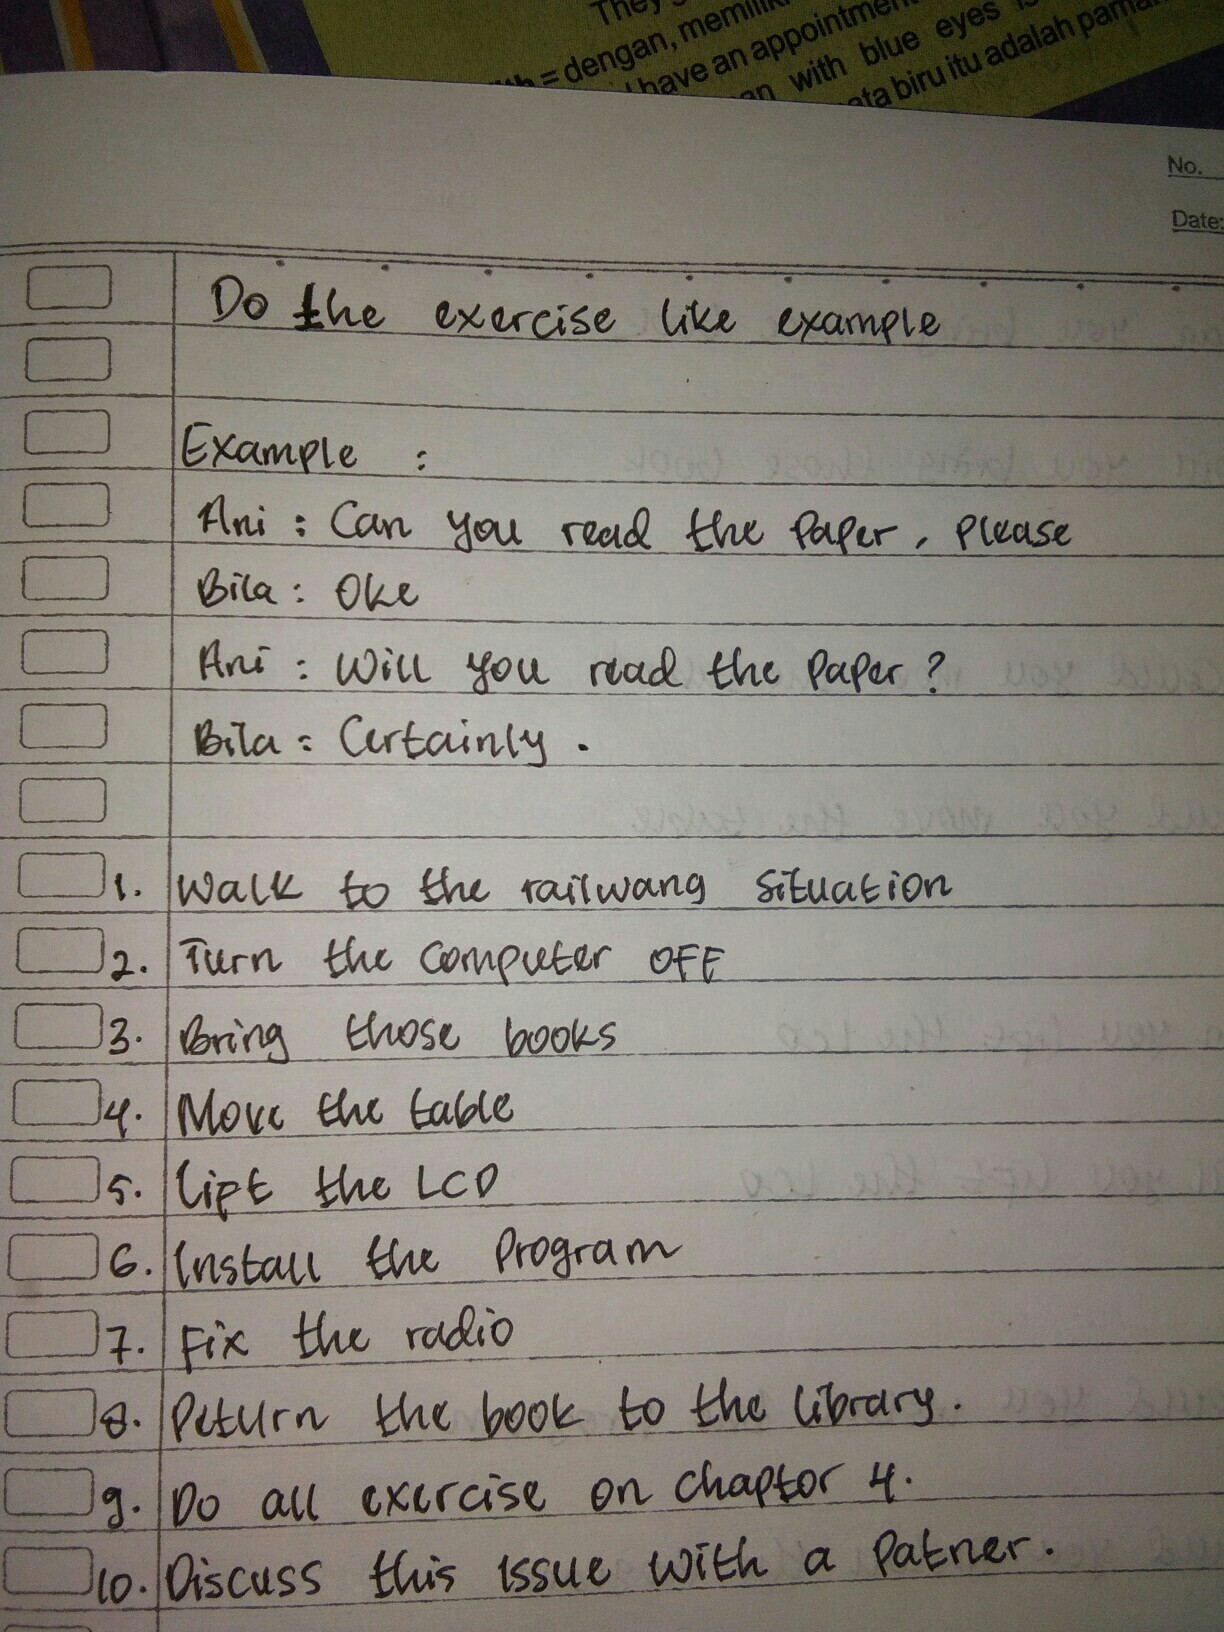 They
= dengan, memiliki
have an appointment
with blue eyes
ata biru itu adalah paman
No.
Date:
Do the exercise like example
Example :
Ani : Can you read the paper, please
Bila : Oke
Ani : Will you read the paper?
Bila : Certainly.
1. Walk to the railwang situation
2. Turn the computer OFF
3. Bring those books
4. Move the table
5. Lipt the LCD
6. Install the program
7. Fix the radio
8. Return the book to the library.
9. Do all exercise on chaptor 4.
10. Discuss this issue with a patner.